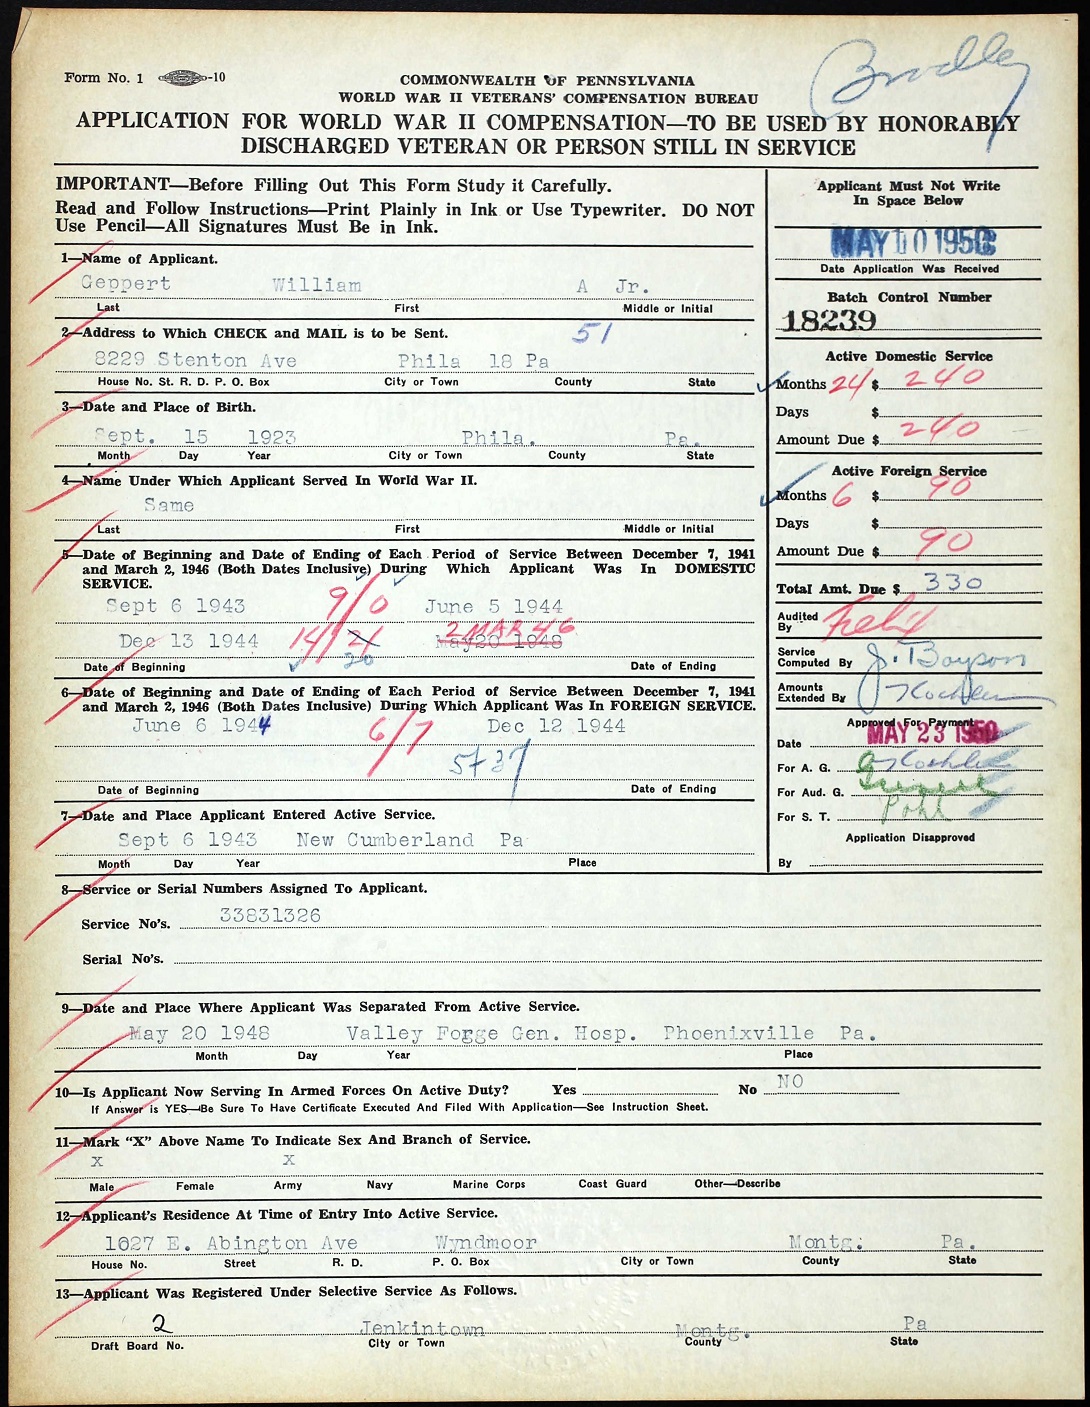 Form No. 1 -10
Bradley
COMMONWEALTH OF PENNSYLVANIA
WORLD WAR II VETERANS' COMPENSATION BUREAU
APPLICATION FOR WORLD WAR II COMPENSATION—TO BE USED BY HONORABLY
DISCHARGED VETERAN OR PERSON STILL IN SERVICE
IMPORTANT—Before Filling Out This Form Study it Carefully.
Read and Follow Instructions—Print Plainly in Ink or Use Typewriter. DO NOT
Use Pencil—All Signatures Must Be in Ink.
1—Name of Applicant.
Geppert William A Jr.
Last First Middle or Initial
2—Address to Which CHECK and MAIL is to be Sent. 51
8229 Stenton Ave Phila 18 Pa
House No. St. R. D. P. O. Box City or Town County State
3—Date and Place of Birth.
Sept. 15 1923 Phila. Pa.
Month Day Year City or Town County State
4—Name Under Which Applicant Served In World War II.
Same
Last First Middle or Initial
5—Date of Beginning and Date of Ending of Each Period of Service Between December 7, 1941
and March 2, 1946 (Both Dates Inclusive) During Which Applicant Was In DOMESTIC
SERVICE.
Sept 6 1943 9/0 June 5 1944
Dec 13 1944 14/21 20 2 MAR 46 May20 1948
Date of Beginning Date of Ending
6—Date of Beginning and Date of Ending of Each Period of Service Between December 7, 1941
and March 2, 1946 (Both Dates Inclusive) During Which Applicant Was In FOREIGN SERVICE.
June 6 1944 6/7 Dec 12 1944
537
Date of Beginning Date of Ending
7—Date and Place Applicant Entered Active Service.
Sept 6 1943 New Cumberland Pa
Month Day Year Place
Applicant Must Not Write
In Space Below
MAY 10 1950
Date Application Was Received
Batch Control Number
18239
Active Domestic Service
Months 24 $ 240
Days $
Amount Due $ 240
Active Foreign Service
Months 6 $ 90
Days $
Amount Due $ 90
Total Amt. Due $ 330
Audited
By Felix
Service
Computed By J. Boyson
Amounts
Extended By Kochler
Approved For Payment
MAY 23 1950
Date
For A. G. Kochler
For Aud. G.
For S. T. Pohl
Application Disapproved
By
8—Service or Serial Numbers Assigned To Applicant.
Service No's. 33831326
Serial No's.
9—Date and Place Where Applicant Was Separated From Active Service.
May 20 1948 Valley Forge Gen. Hosp. Phoenixville Pa.
Month Day Year Place
10—Is Applicant Now Serving In Armed Forces On Active Duty? Yes No NO
If Answer is YES—Be Sure To Have Certificate Executed And Filed With Application—See Instruction Sheet.
11—Mark "X" Above Name To Indicate Sex And Branch of Service.
X X
Male Female Army Navy Marine Corps Coast Guard Other—Describe
12—Applicant's Residence At Time of Entry Into Active Service.
1627 E. Abington Ave Wyndmoor Montg. Pa.
House No. Street R. D. P. O. Box City or Town County State
13—Applicant Was Registered Under Selective Service As Follows.
2 Jenkintown Montg. Pa
Draft Board No. City or Town County State